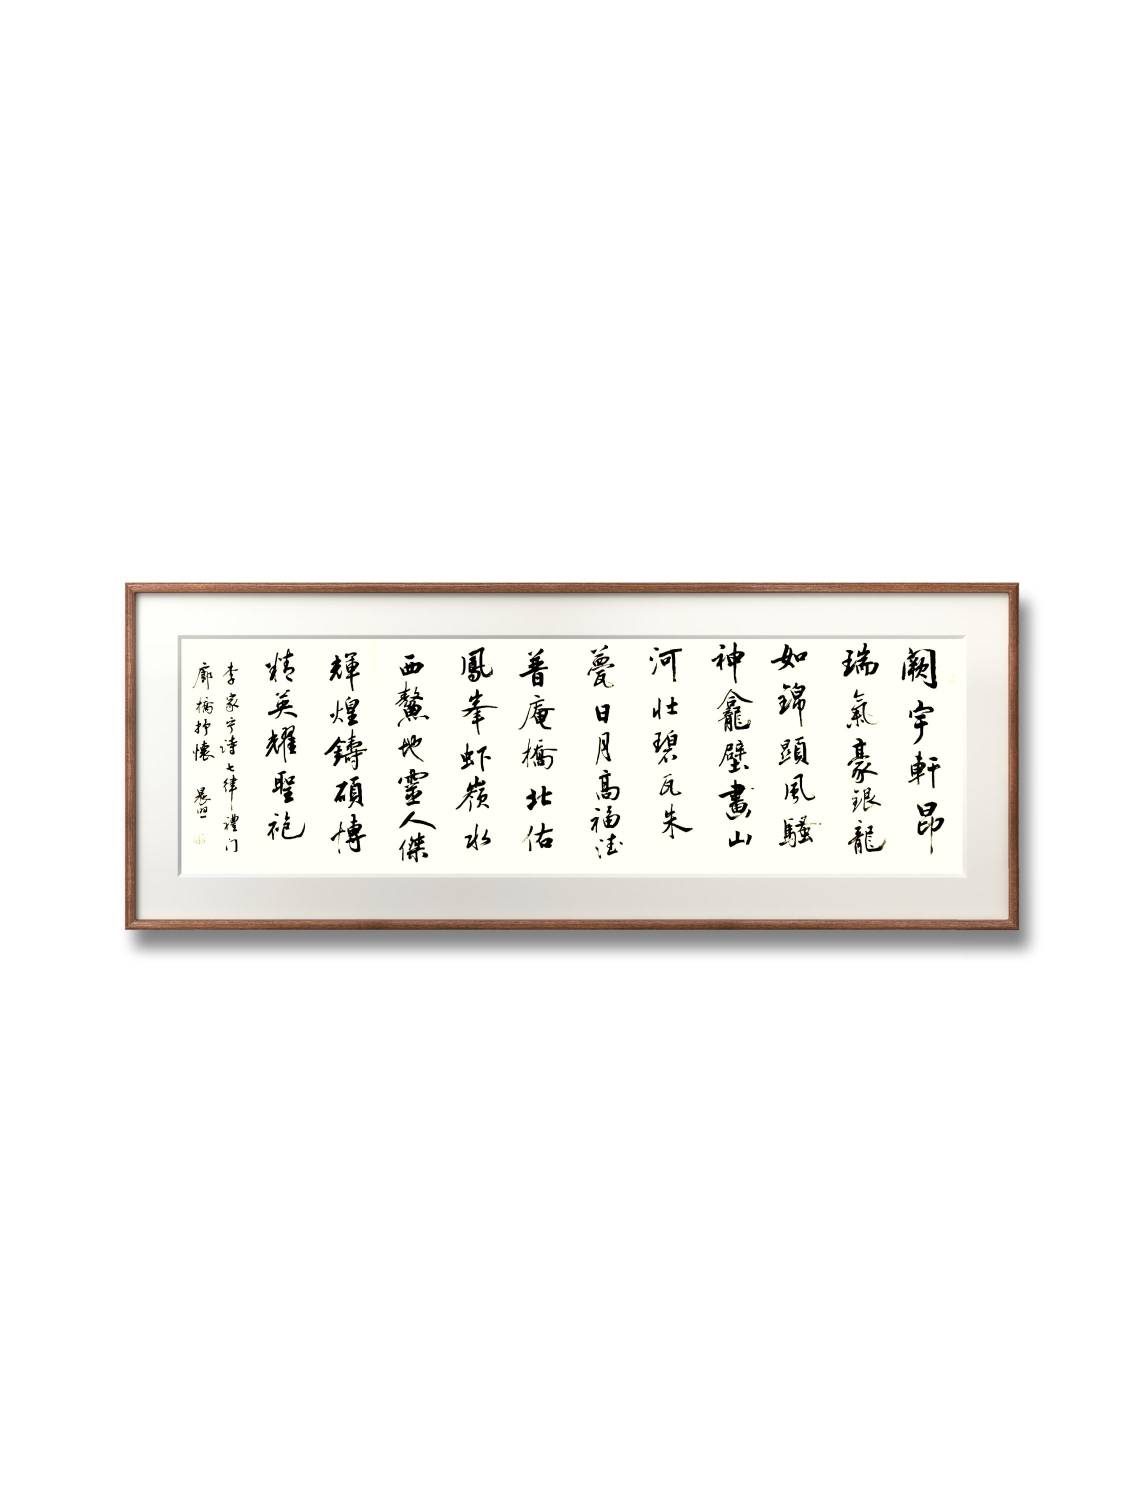 阙宇軒昂
瑞氣豪銀龍
如錦顯風騷
神龕壁畫山
河壮碧瓦朱
甍日月高福德
普庵橋北佑
鳳峯虾嶺水
西鰲地靈人傑
輝煌鑄碩博
精英耀聖袍
李家宇诗七律禮门
廊橋抒懷 晨曦